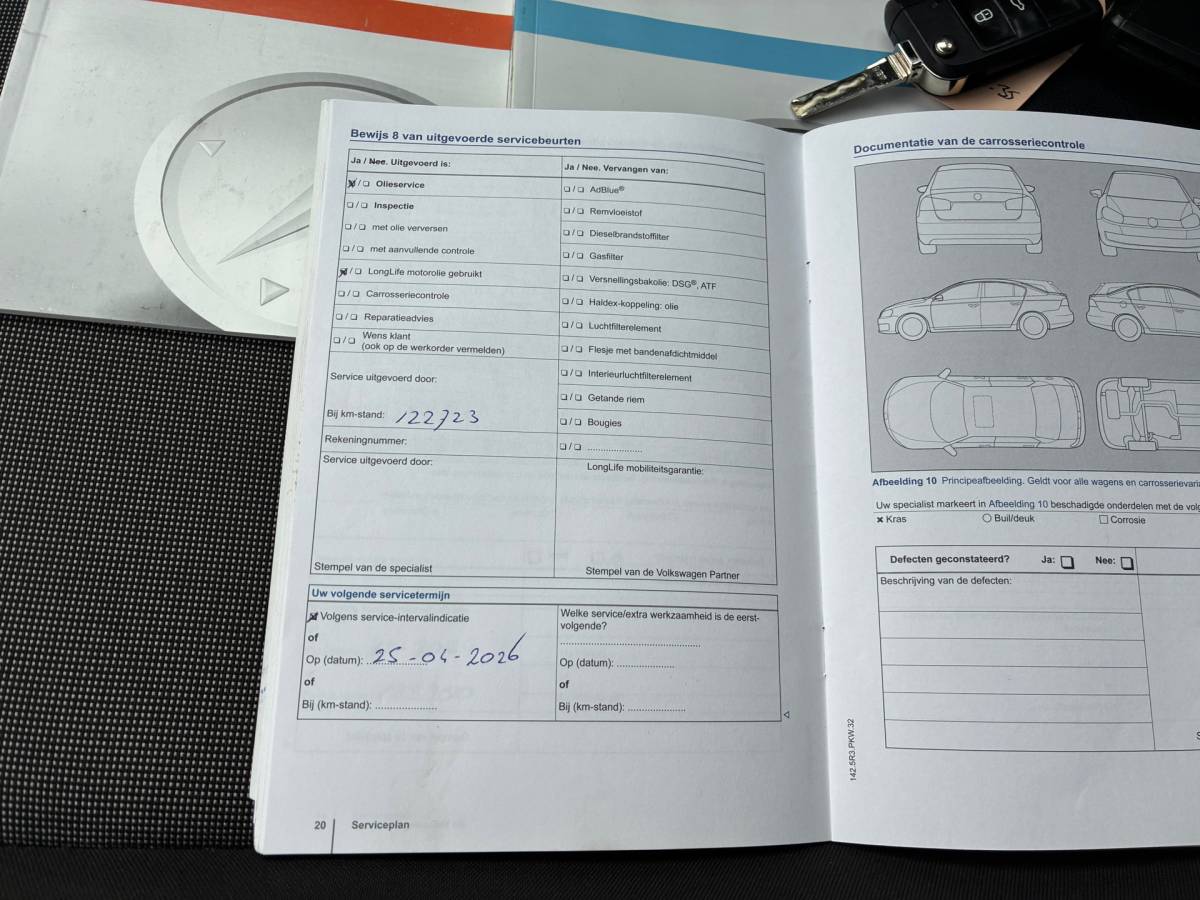 :35
Bewijs 8 van uitgevoerde servicebeurten
Ja / Nee. Uitgevoerd is:
Olieservice
Inspectie
met olie verversen
met aanvullende controle
LongLife motorolie gebruikt
Carrosseriecontrole
Reparatieadvies
Wens klant
(ook op de werkorder vermelden)
Service uitgevoerd door:
Bij km-stand: 122723
Rekeningnummer:
Service uitgevoerd door:
Stempel van de specialist
Ja / Nee. Vervangen van:
AdBlue®
Remvloeistof
Dieselbrandstoffilter
Gasfilter
Versnellingsbakolie: DSG®, ATF
Haldex-koppeling: olie
Luchtfilterelement
Flesje met bandenafdichtmiddel
Interieurluchtfilterelement
Getande riem
Bougies
LongLife mobiliteitsgarantie:
Stempel van de Volkswagen Partner
Uw volgende servicetermijn
Volgens service-intervalindicatie
of
Op (datum): 25-04-2026
of
Bij (km-stand): ....................
Welke service/extra werkzaamheid is de eerst-
volgende?
Op (datum): ..................
of
Bij (km-stand): ..................
20 Serviceplan
Documentatie van de carrosseriecontrole
Afbeelding 10 Principeafbeelding. Geldt voor alle wagens en
Uw specialist markeert in Afbeelding 10 beschadigde onderdelen met de
Kras
Buil/deuk
Corrosie
Defecten geconstateerd? Ja: Nee:
Beschrijving van de defecten:
142.5R3.PKW.32